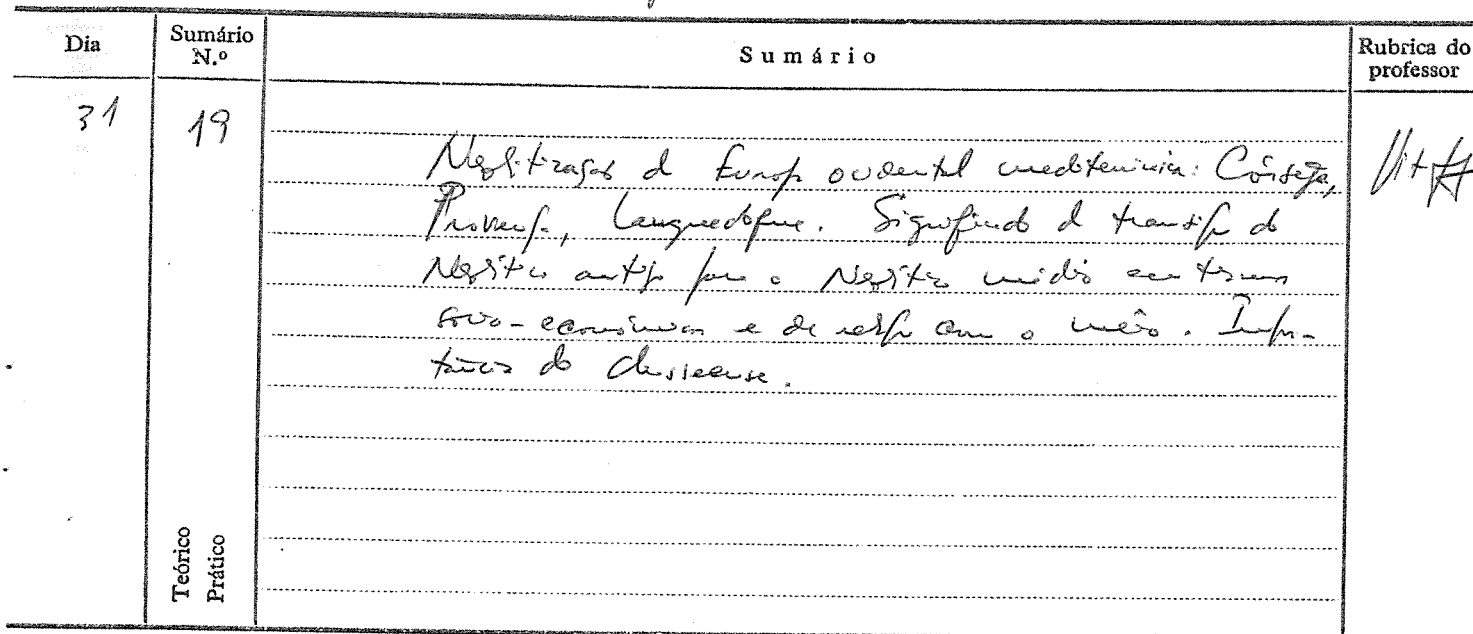 Dia
Sumário N.º
Sumário
Rubrica do professor
31
19
Neolitização da Europa ocidental mediterrânica: Córsega,
Provença, Languedoque. Significado da transição do
Neolítico antigo para o Neolítico médio em termos
sócio-económicos e de relação com o meio. Impor-
tância do Chasseense.
Teórico
Prático